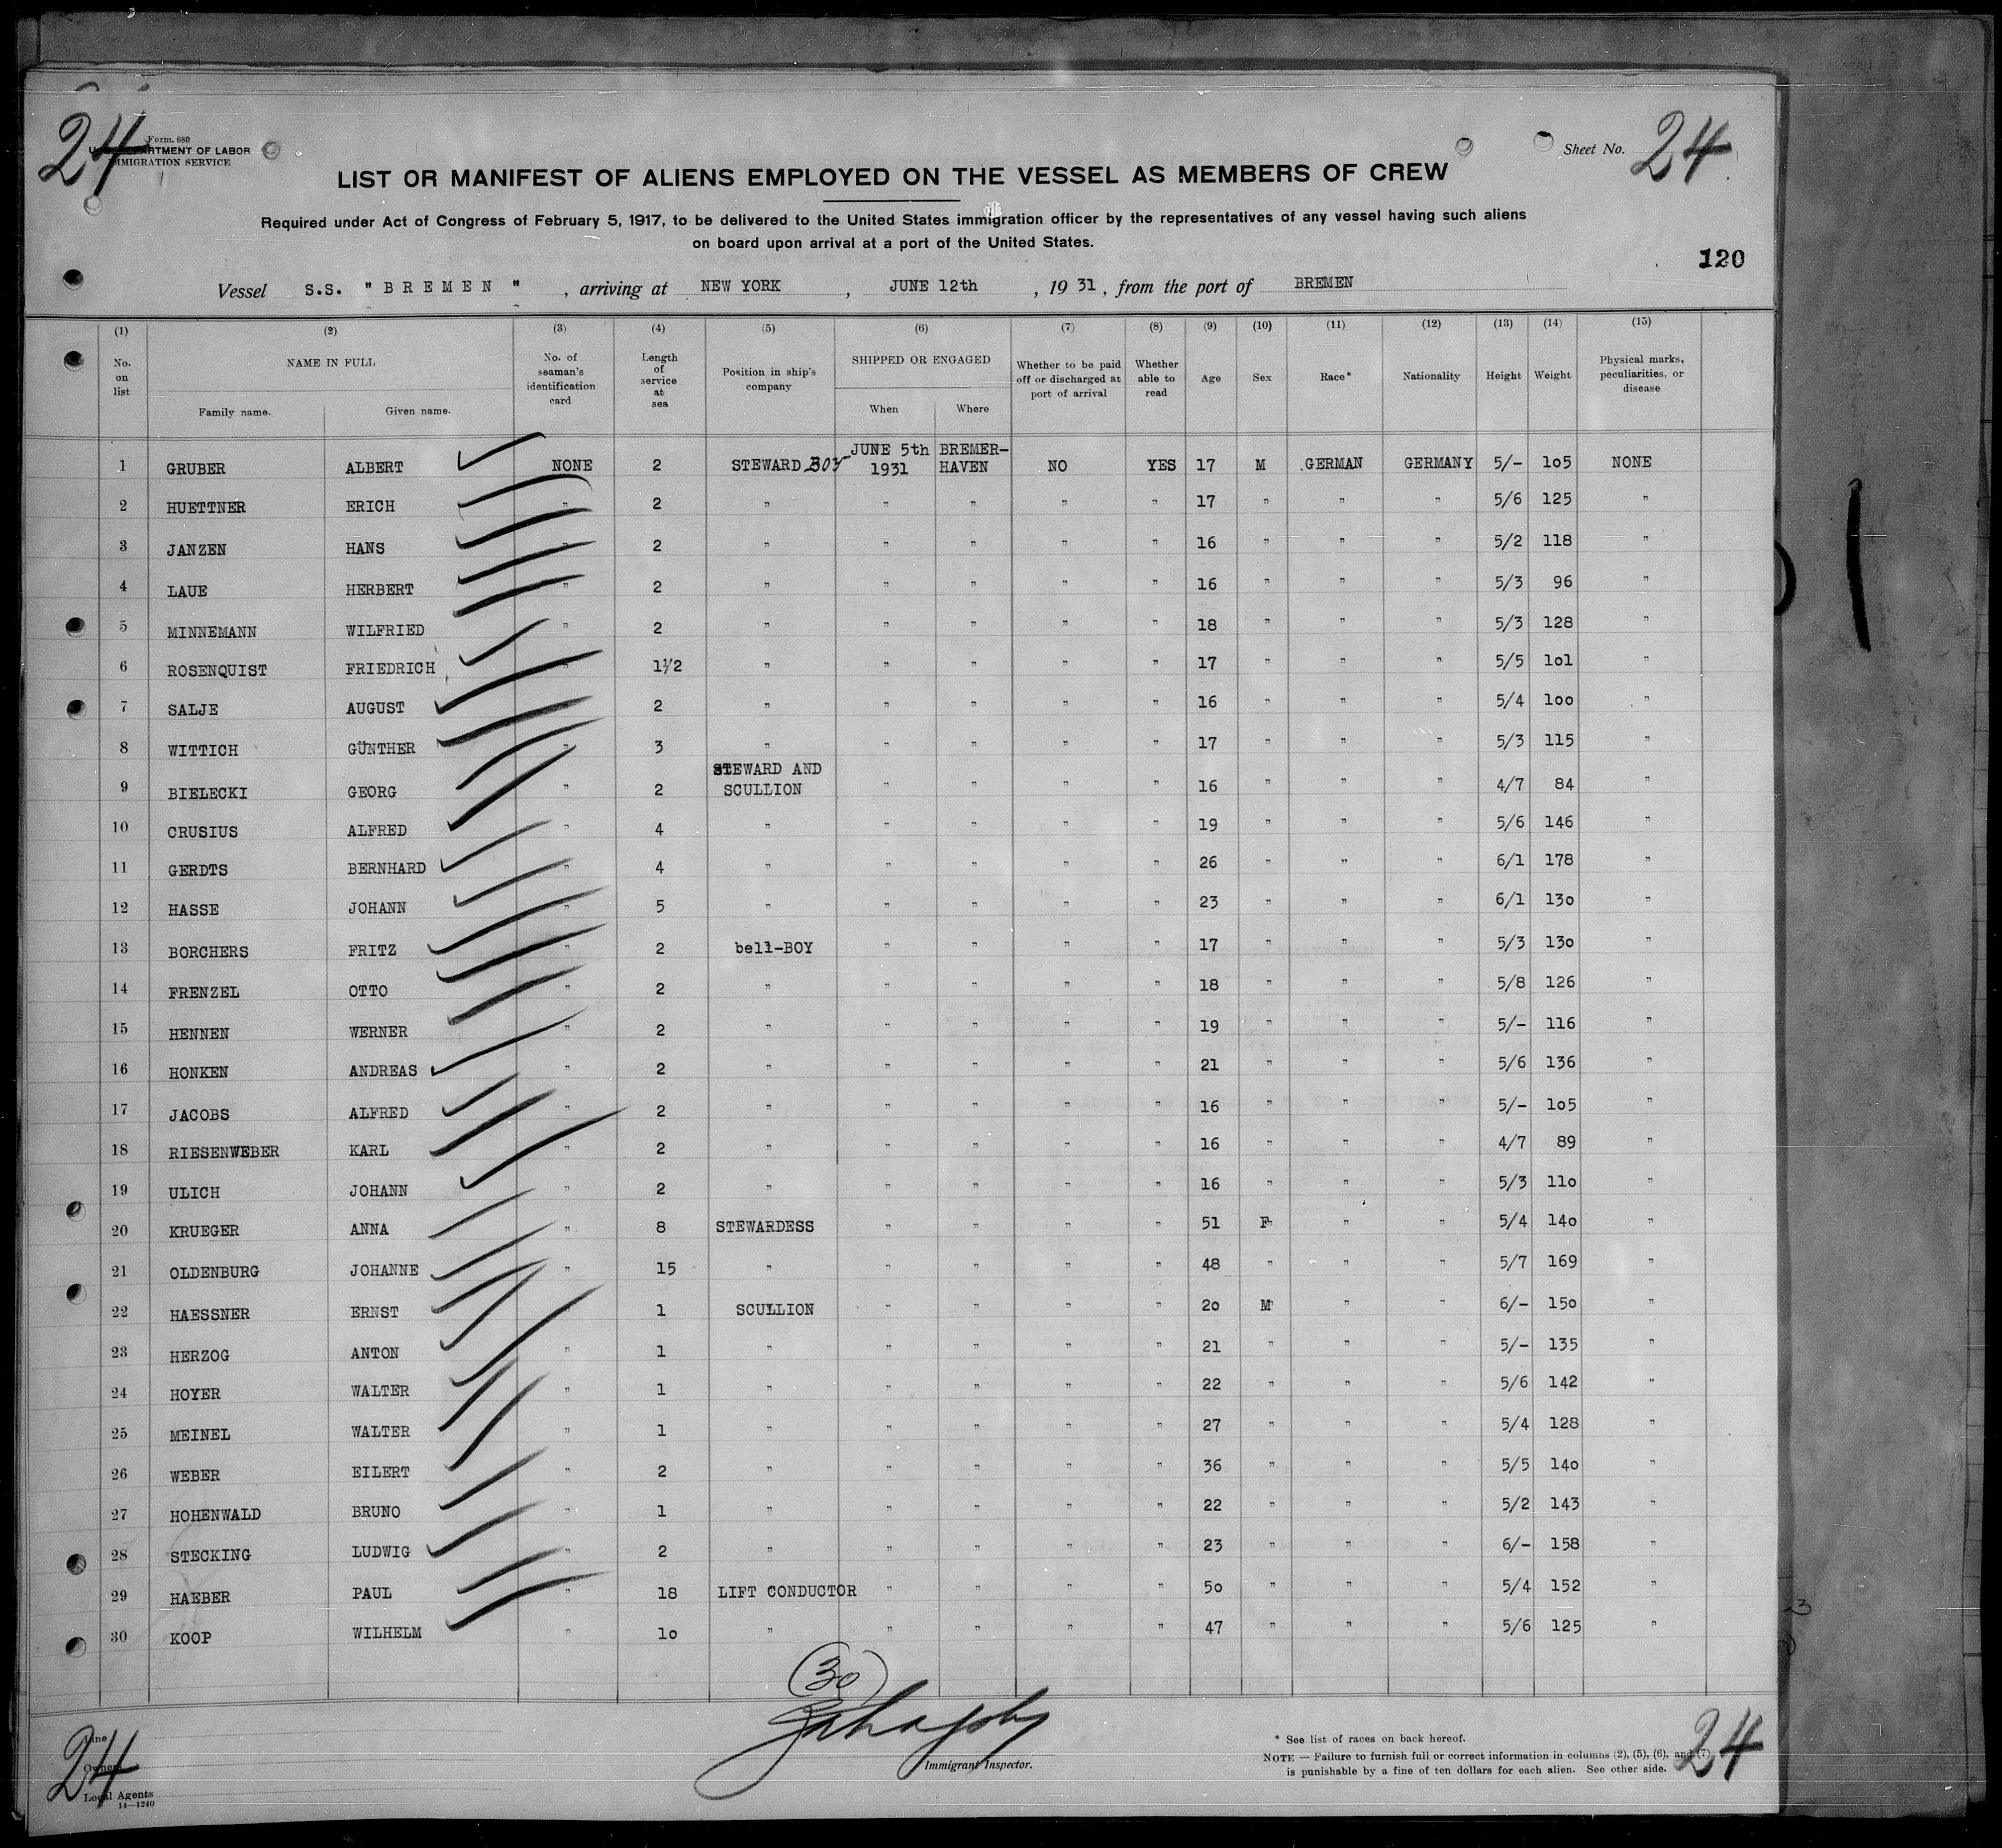 24
Form. 680
U. S. DEPARTMENT OF LABOR
IMMIGRATION SERVICE
Sheet No. 24
LIST OR MANIFEST OF ALIENS EMPLOYED ON THE VESSEL AS MEMBERS OF CREW
Required under Act of Congress of February 5, 1917, to be delivered to the United States immigration officer by the representatives of any vessel having such aliens
on board upon arrival at a port of the United States.
120
Vessel S.S. " B R E M E N " , arriving at NEW YORK , JUNE 12th , 19 31 , from the port of BREMEN
(1) (2) (3) (4) (5) (6) (7) (8) (9) (10) (11) (12) (13) (14) (15)
No. on list NAME IN FULL Family name. Given name. No. of seaman's identification card Length of service at sea Position in ship's company SHIPPED OR ENGAGED When Where Whether to be paid off or discharged at port of arrival Whether able to read Age Sex Race* Nationality Height Weight Physical marks, peculiarities, or disease
1 GRUBER ALBERT NONE 2 STEWARD BOY JUNE 5th 1931 BREMER-HAVEN NO YES 17 M GERMAN GERMANY 5/- 105 NONE
2 HUETTNER ERICH " 2 " " " " " 17 " " " 5/6 125 "
3 JANZEN HANS " 2 " " " " " 16 " " " 5/2 118 "
4 LAUE HERBERT " 2 " " " " " 16 " " " 5/3 96 "
5 MINNEMANN WILFRIED " 2 " " " " " 18 " " " 5/3 128 "
6 ROSENQUIST FRIEDRICH " 1½ " " " " " 17 " " " 5/5 101 "
7 SALJE AUGUST " 2 " " " " " 16 " " " 5/4 100 "
8 WITTICH GÜNTHER " 3 " " " " " 17 " " " 5/3 115 "
9 BIELECKI GEORG " 2 STEWARD AND SCULLION " " " " 16 " " " 4/7 84 "
10 CRUSIUS ALFRED " 4 " " " " " 19 " " " 5/6 146 "
11 GERDTS BERNHARD " 4 " " " " " 26 " " " 6/1 178 "
12 HASSE JOHANN " 5 " " " " " 23 " " " 6/1 130 "
13 BORCHERS FRITZ " 2 bell-BOY " " " " 17 " " " 5/3 130 "
14 FRENZEL OTTO " 2 " " " " " 18 " " " 5/8 126 "
15 HENNEN WERNER " 2 " " " " " 19 " " " 5/- 116 "
16 HONKEN ANDREAS " 2 " " " " " 21 " " " 5/6 136 "
17 JACOBS ALFRED " 2 " " " " " 16 " " " 5/- 105 "
18 RIESENWEBER KARL " 2 " " " " " 16 " " " 4/7 89 "
19 ULICH JOHANN " 2 " " " " " 16 " " " 5/3 110 "
20 KRUEGER ANNA " 8 STEWARDESS " " " " 51 F " " 5/4 140 "
21 OLDENBURG JOHANNE " 15 " " " " " 48 " " " 5/7 169 "
22 HAESSNER ERNST " 1 SCULLION " " " " 20 M " " 6/- 150 "
23 HERZOG ANTON " 1 " " " " " 21 " " " 5/- 135 "
24 HOYER WALTER " 1 " " " " " 22 " " " 5/6 142 "
25 MEINEL WALTER " 1 " " " " " 27 " " " 5/4 128 "
26 WEBER EILERT " 2 " " " " " 36 " " " 5/5 140 "
27 HOHENWALD BRUNO " 1 " " " " " 22 " " " 5/2 143 "
28 STECKING LUDWIG " 2 " " " " " 23 " " " 6/- 158 "
29 HAEBER PAUL " 18 LIFT CONDUCTOR " " " " 50 " " " 5/4 152 "
30 KOOP WILHELM " 10 " " " " " 47 " " " 5/6 125 "
(30)
Immigrant Inspector.
* See list of races on back hereof.
NOTE — Failure to furnish full or correct information in columns (2), (5), (6), and (7)
is punishable by a fine of ten dollars for each alien. See other side.
24
Line
Owners
Local Agents
14—1240
24